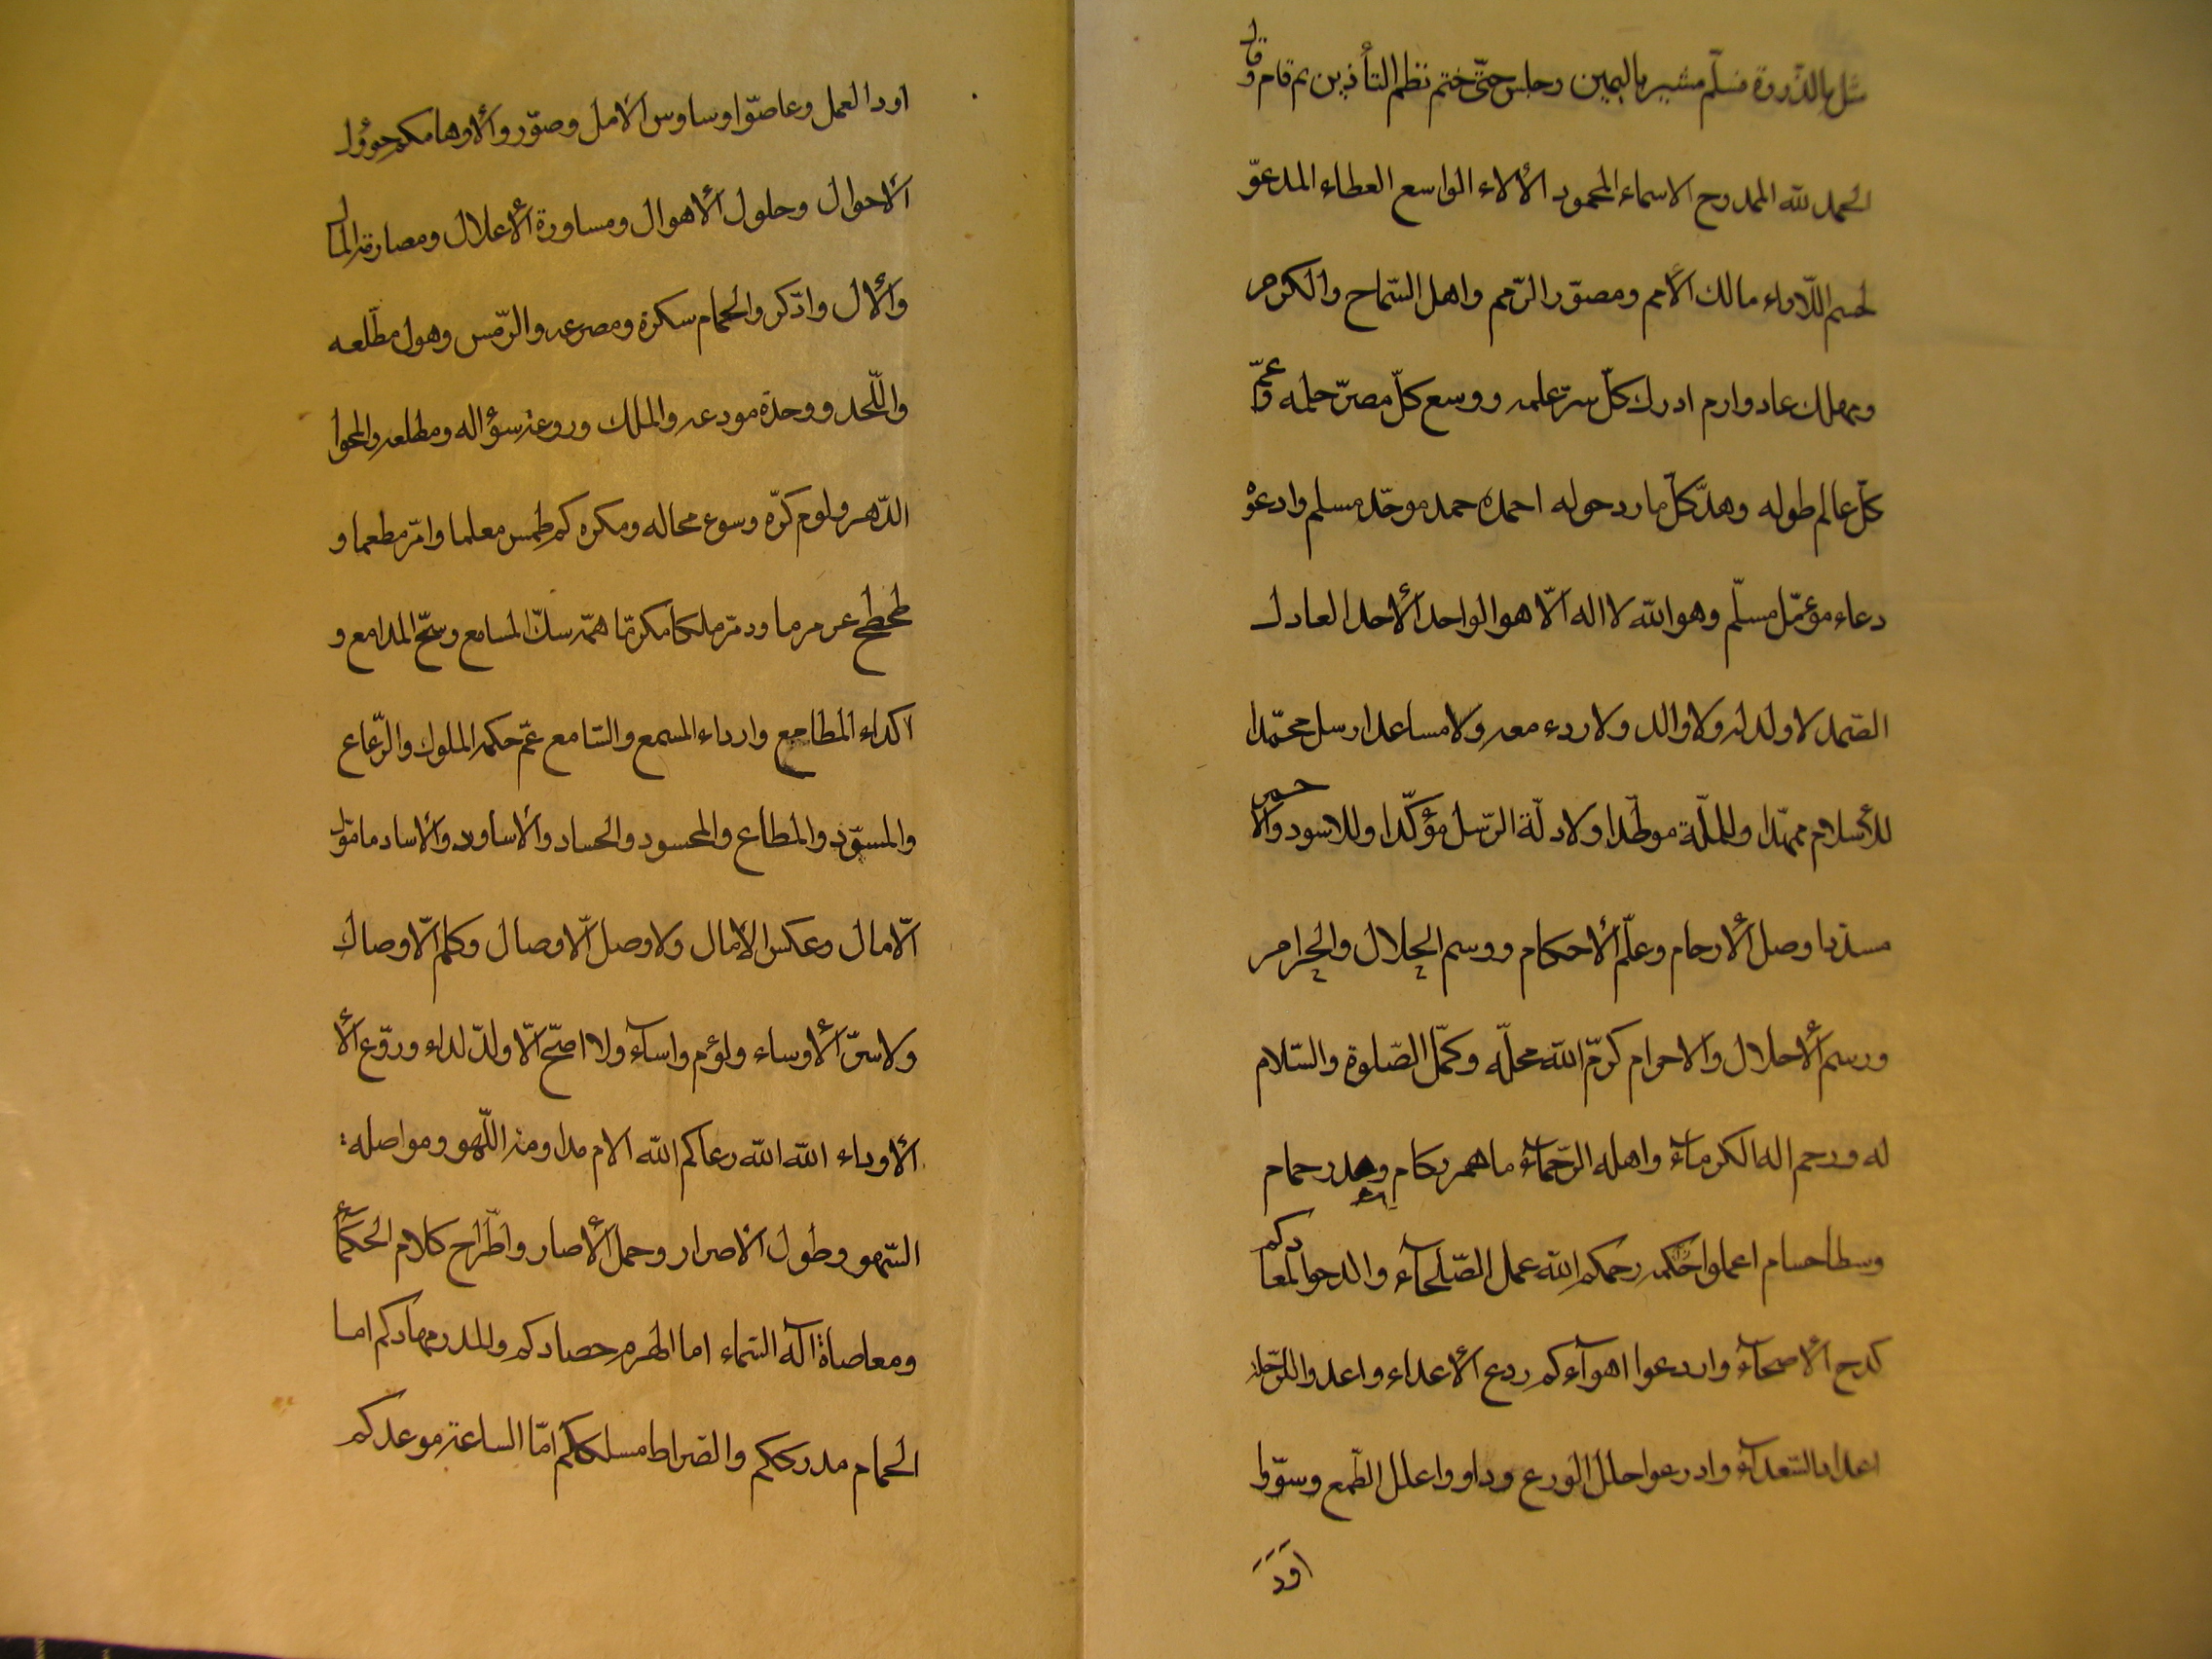 مثل بالذروة فسلّم مشيرا باليمين وجلس حتّى ختم نظم التأذين ثم قام وقال
الحمد لله الممدوح الاسماء المحمود الألاء الواسع العطاء المدعوّ
لحسم اللّاواء مالك الأمم ومصوّر الرّمم واهل السّماح والكرم
ومهلك عاد وارم ادرك كلّ سرّ علمه ووسع كلّ مصرّ حلمه وعمّ
كلّ عالم طوله وهدّ كلّ مارد حوله احمده حمد موحّد مسلم وادعوْه
دعاء مؤمّل مسلّم وهو الله لا اله الّا هو الواحد الأحد العادل
الصّمد لا ولد له ولا والد ولا ردء معه ولا مساعد ارسل محمّدا
للأسلام ممهّدا وللملّة موطّدا ولادلّة الرّسل مؤكّدا وللاسود والاحمر
مسدّدا وصل الأرحام وعلّم الأحكام ووسم الحلال والحرام
ورسم الأحلال والاحرام كرّم الله محلّه وكمّل الصّلوة والسّلام
له ورحم اله الكرماۤء واهله الرّحماۤء ما همر ركام وهدر حمام
وسطا حسام اعملوا رحمكم الله عمل الصّلحاۤء والدحوا لمعادكم
كدح الأصحاۤء واردعوا اهوآءكم ردع الأعداء واعدوا للرّحلة
اعداد السّعداۤء وادرعوا حلل الورع وداووا علل الطّمع وسوّوا
اَوَدَ
اود العمل وعاصوا وساوس الأمل وصوّروا لأوهامكم حؤول
الأحوال وحلول الأهوال ومساورة الأعلال ومصارمة المال
والأل وادّكروا الحمام وسكرة ومصرعه والرّمس وهول مطّلعه
واللّحد ووحدة مودعه والملك وروعة سؤاله ومطلعه والمحوا
الدّهر ولوم كرّه وسوء محاله ومكره كم طمس معلما وامرّ مطعما و
طحطح عرمرما ودمّر ملكا مكرّما همّه سكّ المسامع وسحّ المدامع و
اكداء المطامع وارداء المسمع والسّامع عمّ حكمه الملوك والرّعاع
والمسوّد والمطاع والمحسود والحساد والأساود والأساد ما موّل
الّا مال وعكس الامال ولا وصل الّا وصال وكلم الأوصال
ولا سرّ الّا وساء ولؤم واساۤء ولا اصحّ الّا ولّد لداء وروّع الأ
الأوداء الله الله رعاكم الله الام مداومة اللّهو ومواصلة
السّهو وطول الاصرار وحمل الأصار واطّراح كلام الحكماء
ومعاصاة اله السّماء اما الهرم حصادكم والمدر مهادكم اما
الحمام مدرككم والصّراط مسلككم امّا الساعة موعدكم